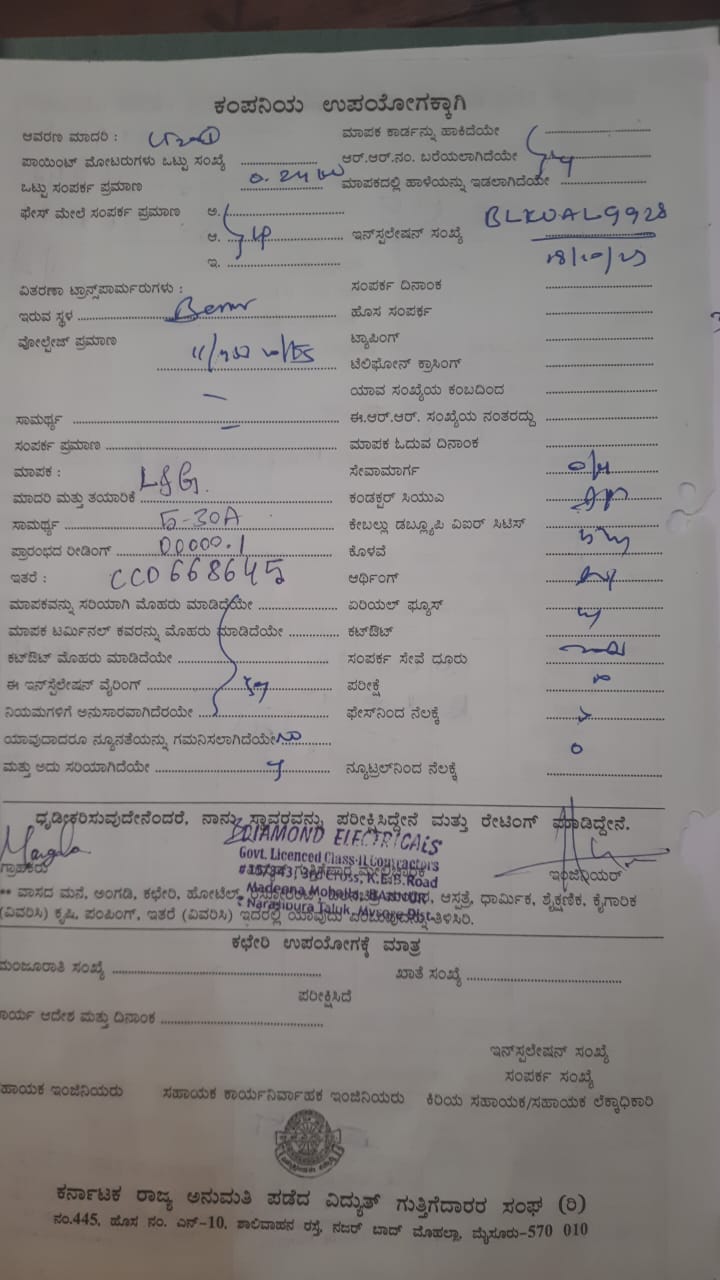 ಕಂಪನಿಯ ಉಪಯೋಗಕ್ಕಾಗಿ
ಆವರಣ ಮಾದರಿ : ಮಾಪಕ ಕಾರ್ಡನ್ನು ಹಾಕಿದೆಯೇ
ಪಾಯಿಂಟ್ ಮೋಟರುಗಳು ಒಟ್ಟು ಸಂಖ್ಯೆ ಆರ್.ಆರ್.ನಂ. ಬರೆಯಲಾಗಿದೆಯೇ
ಒಟ್ಟು ಸಂಪರ್ಕ ಪ್ರಮಾಣ 0.24 kw ಮಾಪಕದಲ್ಲಿ ಹಾಳೆಯನ್ನು ಇಡಲಾಗಿದೆಯೇ
ಫೇಸ್ ಮೇಲೆ ಸಂಪರ್ಕ ಪ್ರಮಾಣ ಅ.
ಆ. ಇನ್‌ಸ್ಪಲೇಷನ್ ಸಂಖ್ಯೆ BLKUAL9928
ಇ. 28/10/25
ವಿತರಣಾ ಟ್ರಾನ್ಸ್‌ಪಾರ್ಮರುಗಳು : ಸಂಪರ್ಕ ದಿನಾಂಕ
ಇರುವ ಸ್ಥಳ ಹೊಸ ಸಂಪರ್ಕ
ವೋಲ್ಟೇಜ್ ಪ್ರಮಾಣ ಟ್ಯಾಪಿಂಗ್
ಟೆಲಿಫೋನ್ ಕ್ರಾಸಿಂಗ್
ಯಾವ ಸಂಖ್ಯೆಯ ಕಂಬದಿಂದ
ಸಾಮರ್ಥ್ಯ ಈ.ಆರ್.ಆರ್. ಸಂಖ್ಯೆಯ ನಂತರದ್ದು
ಸಂಪರ್ಕ ಪ್ರಮಾಣ ಮಾಪಕ ಓದುವ ದಿನಾಂಕ
ಮಾಪಕ : ಸೇವಾಮಾರ್ಗ O/H
ಮಾದರಿ ಮತ್ತು ತಯಾರಿಕೆ L&G. ಕಂಡಕ್ಟರ್ ಸಿಯುವಿ
ಸಾಮರ್ಥ್ಯ 5-30A ಕೇಬಲ್ಲು ಡಬ್ಲ್ಯೂಪಿ ವಿಐರ್ ಸಿಟಿಸ್
ಪ್ರಾರಂಭದ ರೀಡಿಂಗ್ 00000.1 ಕೊಳವೆ
ಇತರೆ : CC0668645 ಆರ್ಥಿಂಗ್
ಮಾಪಕವನ್ನು ಸರಿಯಾಗಿ ಮೊಹರು ಮಾಡಿದೆಯೇ ಏರಿಯಲ್ ಫ್ಯೂಸ್
ಮಾಪಕ ಟರ್ಮಿನಲ್ ಕವರನ್ನು ಮೊಹರು ಮಾಡಿದೆಯೇ ಕಟ್‌ಔಟ್
ಕಟ್‌ಔಟ್ ಮೊಹರು ಮಾಡಿದೆಯೇ ಸಂಪರ್ಕ ಸೇವೆ ದೂರು
ಈ ಇನ್‌ಸ್ಪೆಲೇಷನ್ ವೈರಿಂಗ್ ಪರೀಕ್ಷೆ
ನಿಯಮಗಳಿಗೆ ಅನುಸಾರವಾಗಿದೆರಯೇ ಫೇಸ್‌ನಿಂದ ನೆಲಕ್ಕೆ
ಯಾವುದಾದರೂ ನ್ಯೂನತೆಯನ್ನು ಗಮನಿಸಲಾಗಿದೆಯೇ
ಮತ್ತು ಅದು ಸರಿಯಾಗಿದೆಯೇ ನ್ಯೂಟ್ರಲ್‌ನಿಂದ ನೆಲಕ್ಕೆ 0
ಧೃಡೀಕರಿಸುವುದೇನೆಂದರೆ, ನಾನು ಸ್ಥಾವರವನ್ನು ಪರೀಕ್ಷಿಸಿದ್ದೇನೆ ಮತ್ತು ರೇಟಿಂಗ್ ಮಾಡಿದ್ದೇನೆ.
DIAMOND ELECTRICALS
Mangala Govt. Licenced Class-II Contractors
ಗ್ರಾಹಕರು #157/343, 3rd Cross, K.E.B.Road ಇಂಜಿನಿಯರ್
Madeena Mohalla, BANNUR
** ವಾಸದ ಮನೆ, ಅಂಗಡಿ, ಕಛೇರಿ, ಹೋಟೆಲ್, ಆಸ್ಪತ್ರೆ, ಧಾರ್ಮಿಕ, ಶೈಕ್ಷಣಿಕ, ಕೈಗಾರಿಕ
Narasipura Taluk, Mysore Dist.
(ವಿವರಿಸಿ) ಕೃಷಿ, ಪಂಪಿಂಗ್, ಇತರೆ (ವಿವರಿಸಿ) ಇದರಲ್ಲಿ ಯಾವುದು ತಿಳಿಸಿರಿ.
ಕಛೇರಿ ಉಪಯೋಗಕ್ಕೆ ಮಾತ್ರ
ಮಂಜೂರಾತಿ ಸಂಖ್ಯೆ ಖಾತೆ ಸಂಖ್ಯೆ
ಪರೀಕ್ಷಿಸಿದೆ
ಕಾರ್ಯ ಆದೇಶ ಮತ್ತು ದಿನಾಂಕ
ಇನ್‌ಸ್ಪಲೇಷನ್ ಸಂಖ್ಯೆ
ಸಂಪರ್ಕ ಸಂಖ್ಯೆ
ಸಹಾಯಕ ಇಂಜಿನಿಯರು ಸಹಾಯಕ ಕಾರ್ಯನಿರ್ವಾಹಕ ಇಂಜಿನಿಯರು ಕಿರಿಯ ಸಹಾಯಕ/ಸಹಾಯಕ ಲೆಕ್ಕಾಧಿಕಾರಿ
ಕರ್ನಾಟಕ ರಾಜ್ಯ ಅನುಮತಿ ಪಡೆದ ವಿದ್ಯುತ್ ಗುತ್ತಿಗೆದಾರರ ಸಂಘ (ರಿ)
ನಂ.445, ಹೊಸ ನಂ. ಎನ್-10, ಶಾಲಿವಾಹನ ರಸ್ತೆ, ನಜರ್ ಬಾದ್ ಮೊಹಲ್ಲಾ, ಮೈಸೂರು-570 010